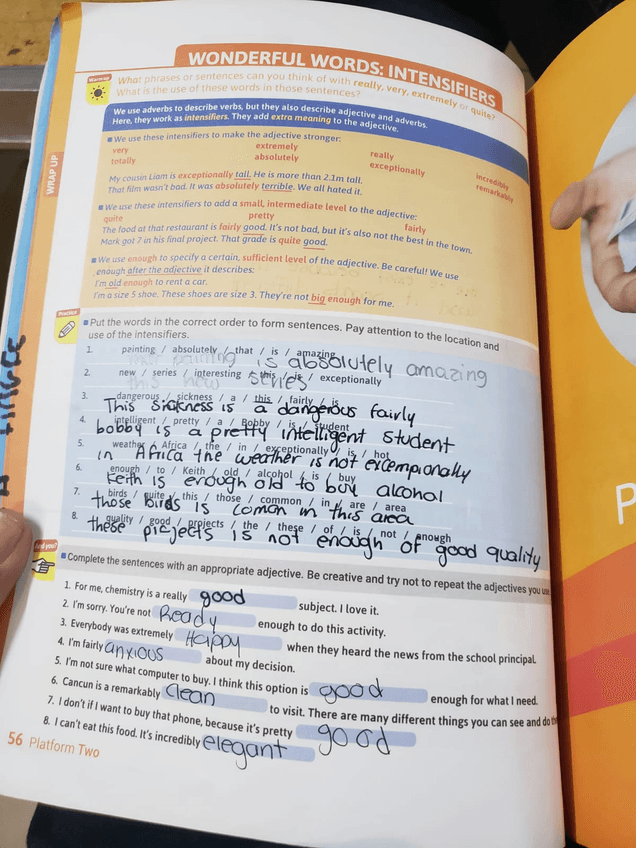 WONDERFUL WORDS: INTENSIFIERS
Warm up
What phrases or sentences can you think of with really, very, extremely or quite?
What is the use of these words in those sentences?
We use adverbs to describe verbs, but they also describe adjective and adverbs.
Here, they work as intensifiers. They add extra meaning to the adjective.
WRAP UP
We use these intensifiers to make the adjective stronger:
very extremely really incredibly
totally absolutely exceptionally remarkably
My cousin Liam is exceptionally tall. He is more than 2.1m tall.
That film wasn't bad. It was absolutely terrible. We all hated it.
We use these intensifiers to add a small, intermediate level to the adjective:
quite pretty fairly
The food at that restaurant is fairly good. It's not bad, but it's also not the best in the town.
Mark got 7 in his final project. That grade is quite good.
We use enough to specify a certain, sufficient level of the adjective. Be careful! We use
enough after the adjective it describes:
I'm old enough to rent a car.
I'm a size 5 shoe. These shoes are size 3. They're not big enough for me.
Practice
Put the words in the correct order to form sentences. Pay attention to the location and
use of the intensifiers.
1. painting / absolutely / that / is / amazing
painting is absolutely amazing
2. new / series / interesting / this / is / exceptionally
this new series
3. dangerous / sickness / a / this / fairly / is
This sickness is a dangerous fairly
4. intelligent / pretty / a / Bobby / is / student
bobby is a pretty intelligent student
5. weather / Africa / the / in / exceptionally / is / hot
in Africa the weather is not excempionally
6. enough / to / Keith / old / alcohol / is / buy
Keith is enough old to buy alcohol
7. birds / quite / this / those / common / in / are / area
those birds is coman in this area
8. quality / good / projects / the / these / of / is / not / enough
these projects is not enough of good quality
And you?
Complete the sentences with an appropriate adjective. Be creative and try not to repeat the adjectives you use
1. For me, chemistry is a really good subject. I love it.
2. I'm sorry. You're not Ready enough to do this activity.
3. Everybody was extremely Happy when they heard the news from the school principal.
4. I'm fairly anxious about my decision.
5. I'm not sure what computer to buy. I think this option is good enough for what I need.
6. Cancun is a remarkably clean to visit. There are many different things you can see and do
7. I don't if I want to buy that phone, because it's pretty good
8. I can't eat this food. It's incredibly elegant
56 Platform Two
P